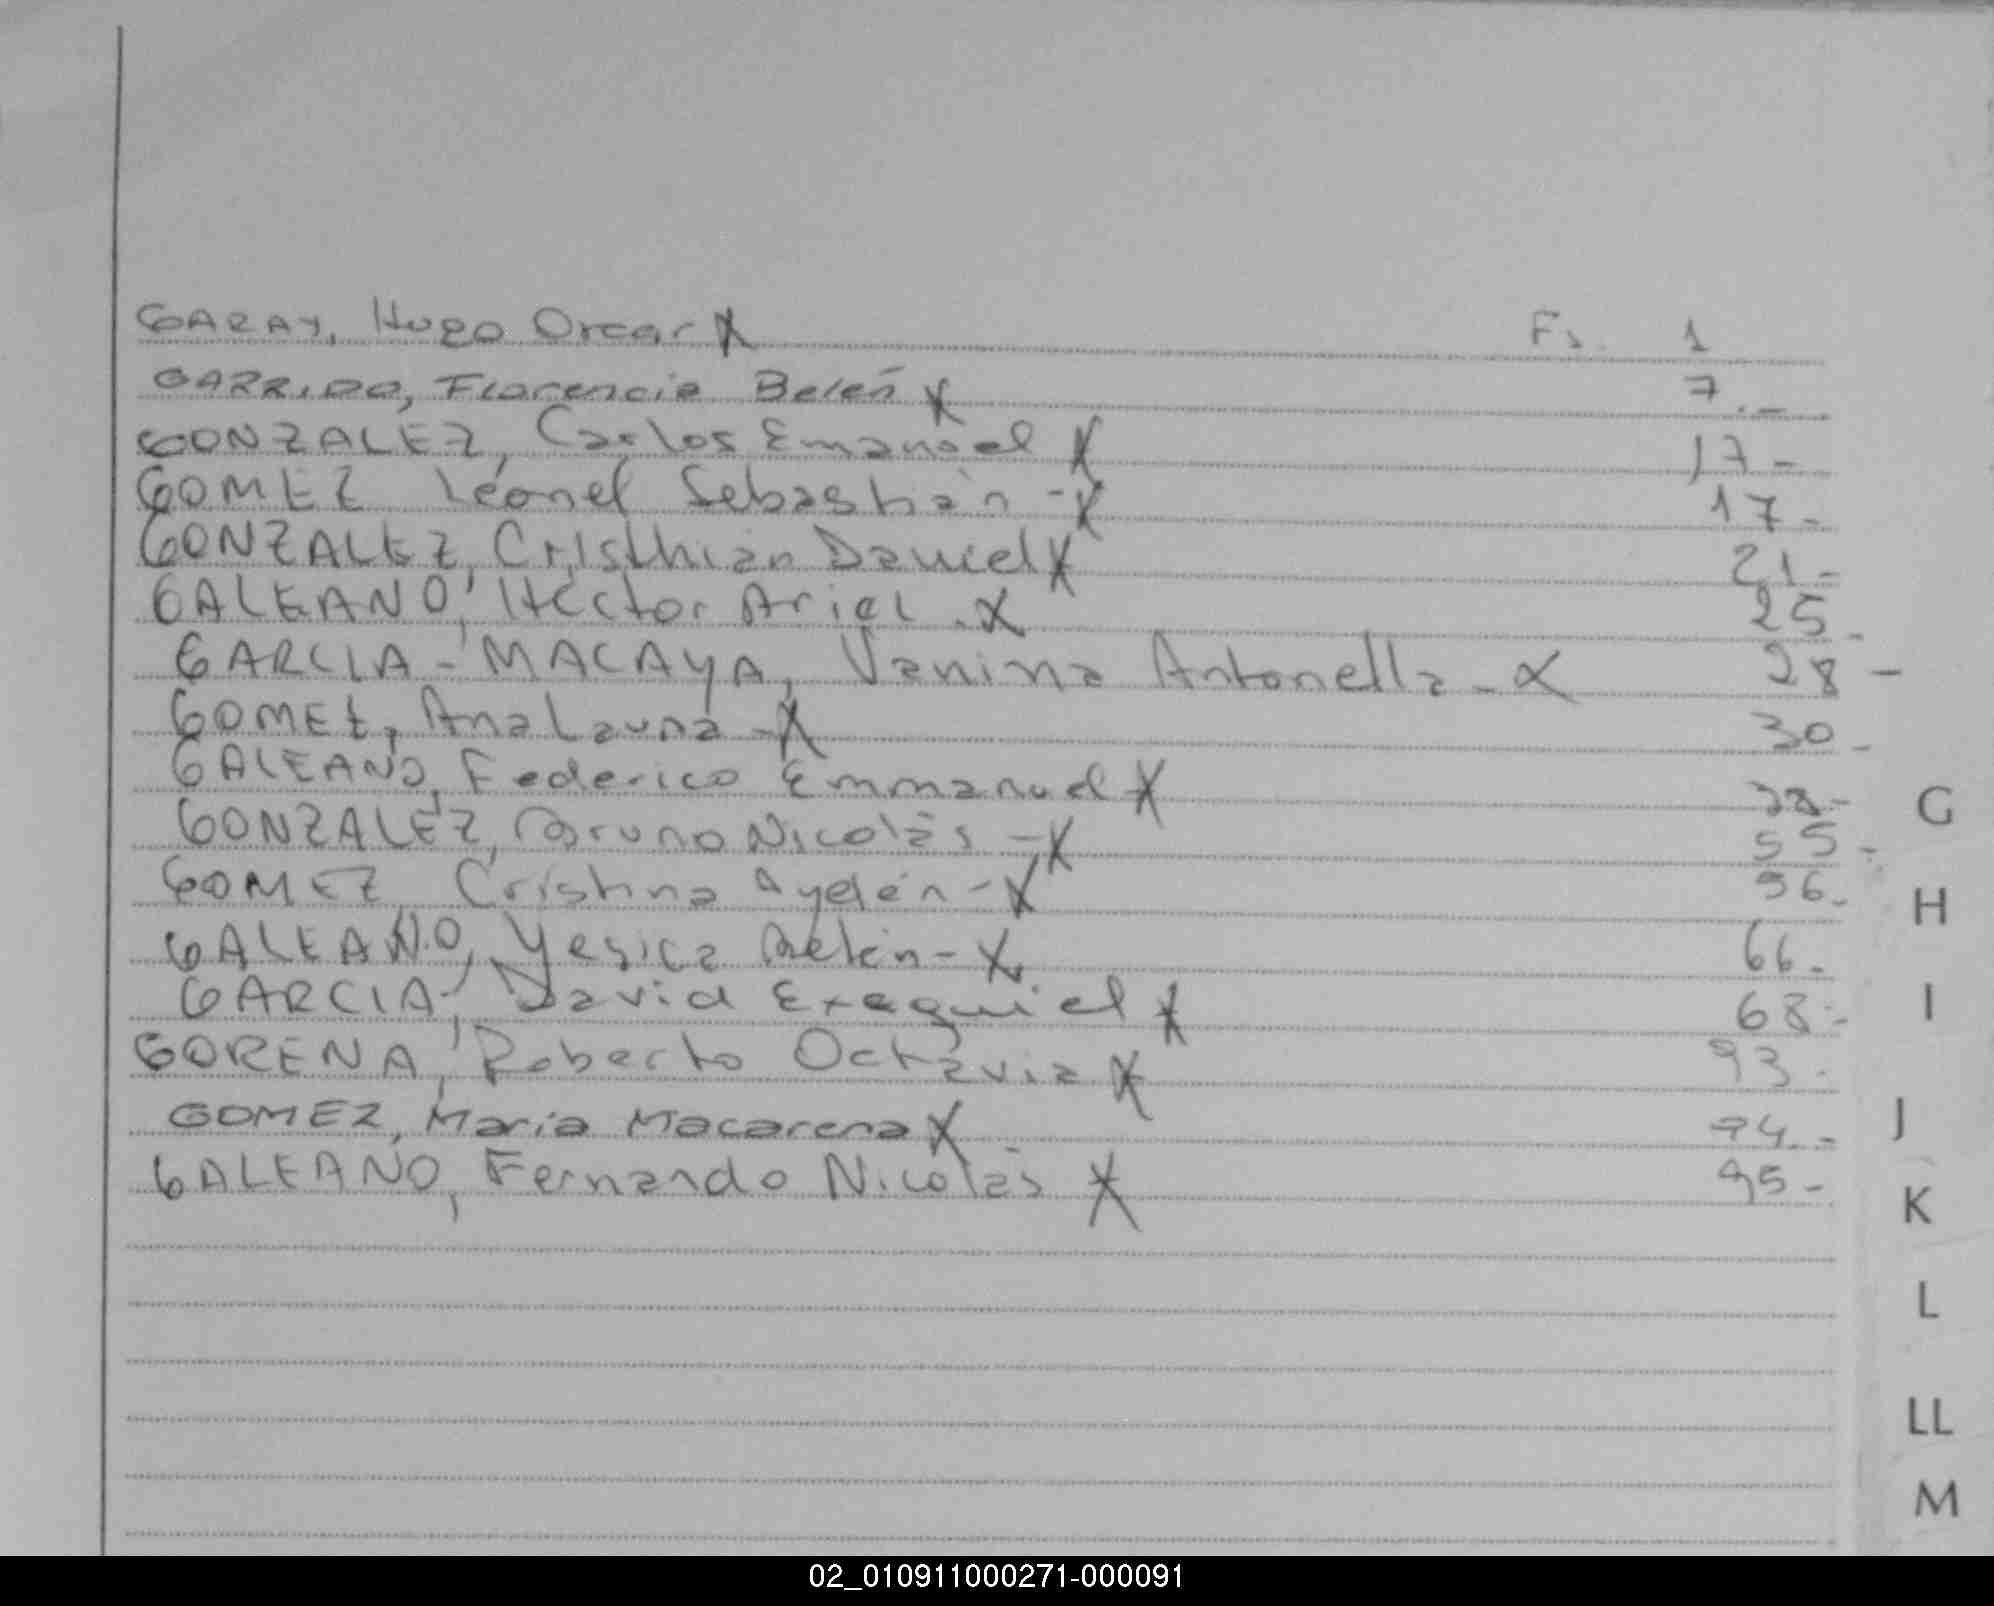 GARAY, Hugo Oscar X Fs. 1
GARRIDO, Florencia Belén X 7.-
GONZALEZ, Carlos Emanuel X 17-
GOMEZ Leonel Sebastián - X 17-
GONZALEZ, Cristhian Daniel X 21-
GALEANO, Héctor Ariel - X 25-
GARCIA - MACAYA, Vanina Antonella - X 28-
GOMEZ, Ana Laura - X 30-
GALEANO, Federico Emmanuel X
GONZALEZ, Bruno Nicolás - X 55-
GOMEZ Cristina Ayelén - X 56-
GALEANO, Yesica Belén - X 66-
GARCIA, David Exequiel X 68-
GORENA, Roberto Octavio X 93-
GOMEZ, María Macarena X 94.-
GALEANO, Fernando Nicolás X 95-
G
H
I
J
K
L
LL
M
02_010911000271-000091